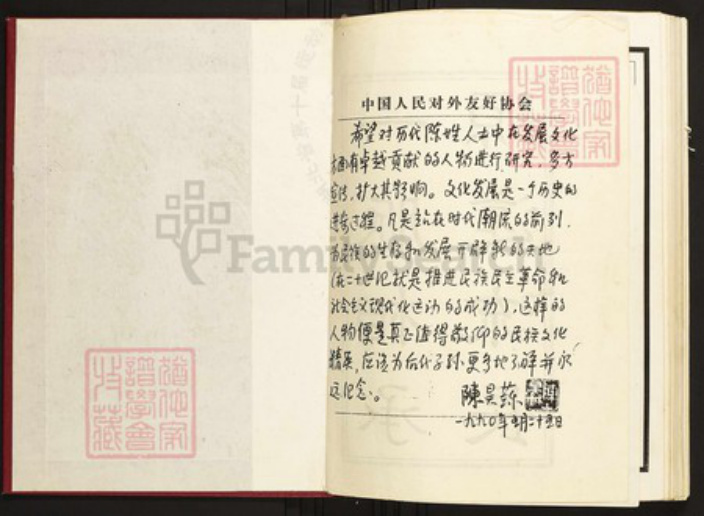 中国人民对外友好协会
希望对历代陈姓人士中在发展文化
方面有卓越贡献的人物进行研究，多方
宣传，扩大其影响。文化发展是一个历史的
进步过程。凡是站在时代潮流的前列，
为民族的生存和发展开辟新的天地
（在二十世纪就是推进民族民主革命和
社会主义现代化运动的成功），这样的
人物便是真正值得敬仰的民族文化
精英，应该为后代子孙更多地了解并永
远记念。
陳昊蘇
一九九〇年 月二十五日
FamilySearch